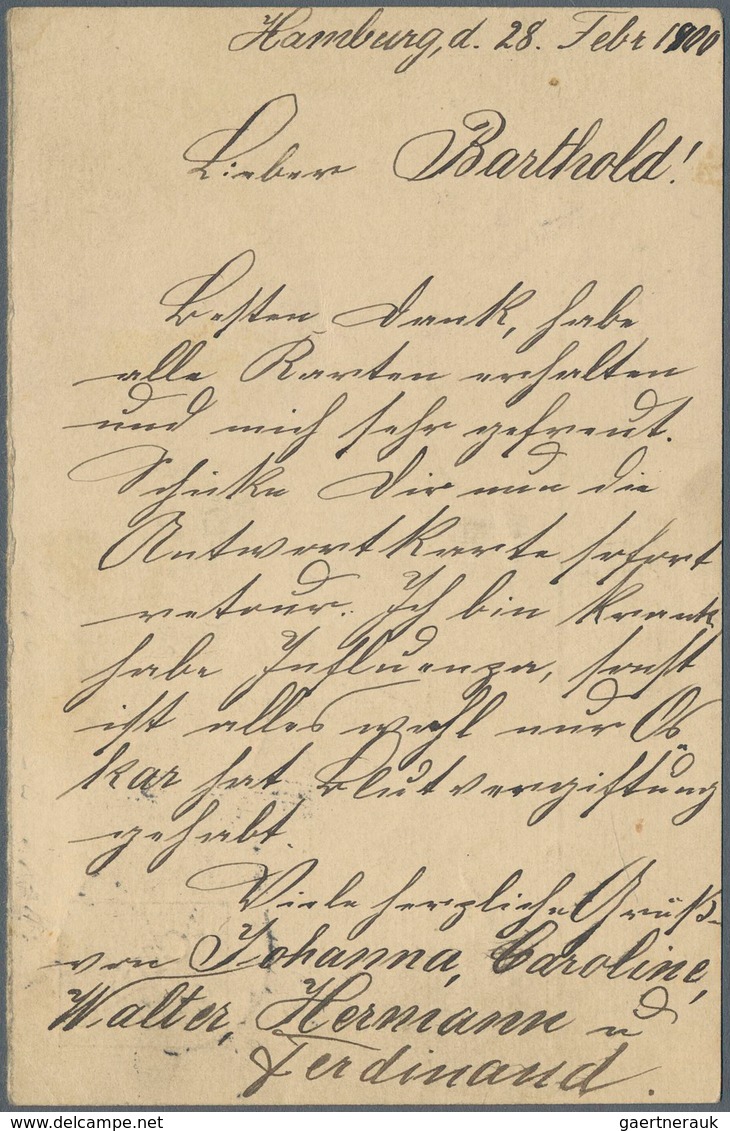 Hamburg, d. 28. Febr 1900
Lieber Barthold!
Besten Dank, habe
alle Karten erhalten
und mich sehr gefreut.
Schicke Dir nun die
Antwortkarte sofort
retour. Ich bin krank
habe Influenza, sonst
ist alles wohl nur Os-
kar hat Blutvergiftung
gehabt.
Viele herzliche Grüß
von Johanna, Caroline,
Walter, Hermann u
Ferdinand.
gaertnerauk